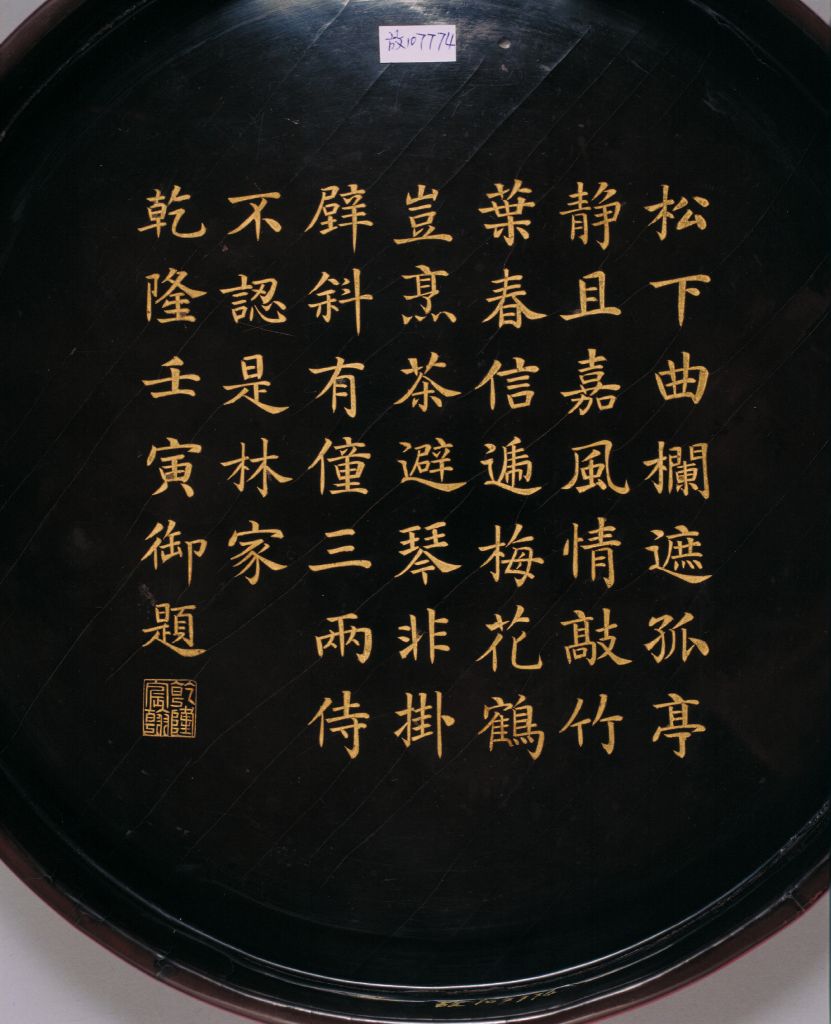 故107774
松下曲欄遮孤亭
静且嘉風情敲竹
葉春信遍梅花鶴
豈烹茶避琴非掛
壁斜有僮三兩侍
不認是林家
乾隆壬寅御題
乾隆宸翰